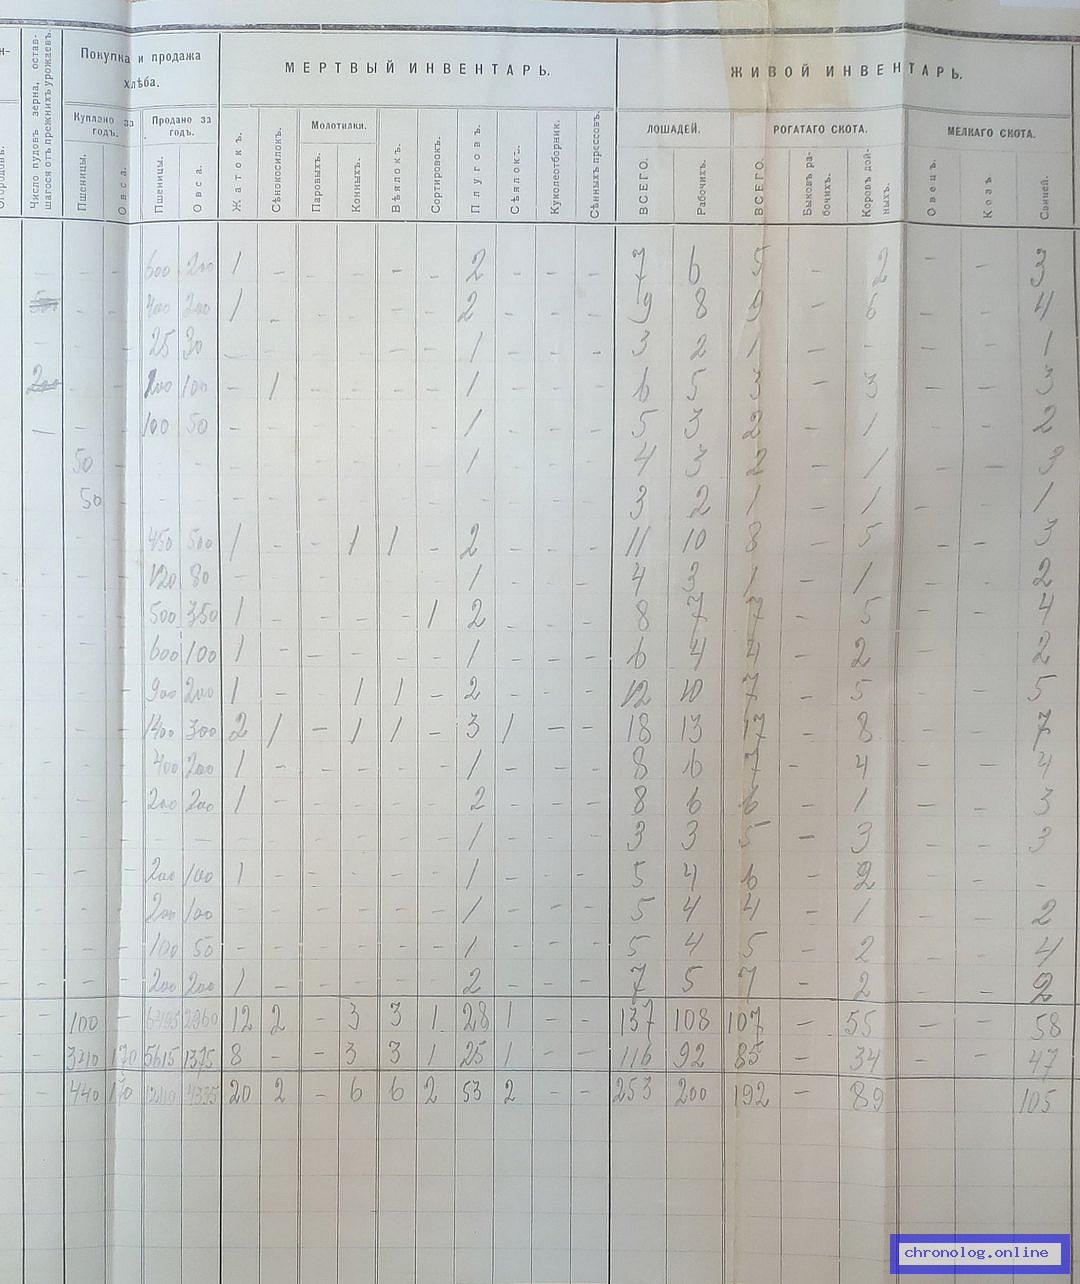 Число пудовъ зерна, остав-
шагося отъ прежнихъ урожаевъ.
Покупка и продажа
хлѣба.
Куплено за
годъ.
Пшеницы.
Овса.
Продано за
годъ.
Пшеницы.
Овса.
МЕРТВЫЙ ИНВЕНТАРЬ.
Жатокъ.
Сѣнокосилокъ.
Молотилки.
Паровыхъ.
Конныхъ.
Вѣялокъ.
Сортировокъ.
Плуговъ.
Сѣялокъ.
Куколеотборник.
Сѣнныхъ прессовъ.
ЖИВОЙ ИНВЕНТАРЬ.
ЛОШАДЕЙ.
ВСЕГО.
Рабочихъ.
РОГАТАГО СКОТА.
ВСЕГО.
Быковъ ра-
бочихъ.
Коровъ дой-
ныхъ.
МЕЛКАГО СКОТА.
Овецъ.
Козъ.
Свиней.
600 200 1 - - - - - 2 - - - 7 6 5 - 2 - - 3
400 200 1 - - - - - 2 - - - 9 8 9 - 6 - - 4
25 30 - - - - - - 1 - - - 3 2 1 - - - - 1
200 100 - 1 - - - - 1 - - - 6 5 3 - 3 - - 3
100 50 - - - - - - 1 - - - 5 3 2 - 1 - - 2
50 - - - - - - - - - 1 - - - 4 3 2 - 1 - - 3
50 - - - - - - - - - - - - - 3 2 1 - 1 - - 1
450 500 1 - - 1 1 - 2 - - - 11 10 8 - 5 - - 3
120 80 - - - - - - 1 - - - 4 3 1 - 1 - - 2
500 350 1 - - - - 1 2 - - - 8 7 7 - 5 - - 4
600 100 1 - - - - - 1 - - - 6 4 4 - 2 - - 2
900 200 1 - - 1 1 - 2 - - - 12 10 7 - 5 - - 5
1400 300 2 1 - 1 1 - 3 1 - - 18 13 17 - 8 - - 7
400 200 1 - - - - - 1 - - - 8 6 7 - 4 - - 4
200 200 1 - - - - - 2 - - - 8 6 6 - 1 - - 3
- - - - - - - - 1 - - - 3 3 5 - 3 - - 3
200 100 1 - - - - - 1 - - - 5 4 6 - 2 - - -
200 100 - - - - - - 1 - - - 5 4 4 - 1 - - 2
100 50 - - - - - - 1 - - - 5 4 5 - 2 - - 4
200 200 1 - - - - - 2 - - - 7 5 7 - 2 - - 2
100 - 6495 2960 12 2 - 3 3 1 28 1 - - 137 108 107 - 55 - - 58
340 170 5615 1375 8 - - 3 3 1 25 1 - - 116 92 85 - 34 - - 47
440 170 12110 4335 20 2 - 6 6 2 53 2 - - 253 200 192 - 89 105
chronolog.online